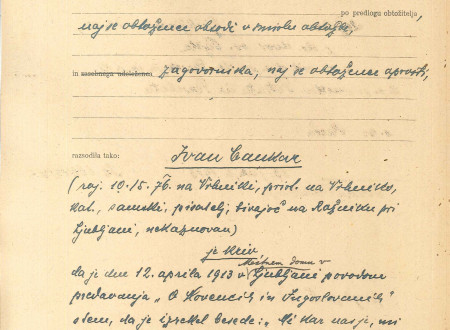 po predlogu obtožitelja,
naj se obtoženca obsodi v smislu obtožbe,
in zasebnega udeleženca zagovornika, naj se obtoženca oprosti,
razsodila tako:
Ivan Cankar
(roj. 10. 5. 76. na Vrhniki, prist. na Vrhniko,
kat., samski, pisatelj, bivajoč na Rožniku pri
Ljubljani, nekaznovan)
je kriv
Mestnem domu v
da je dne 12. aprila 1913 v Ljubljani povodom
predavanja „O Slovencih in Jugoslovanih"
s tem, da je izrekel besede: „Mi kar nas je, mi